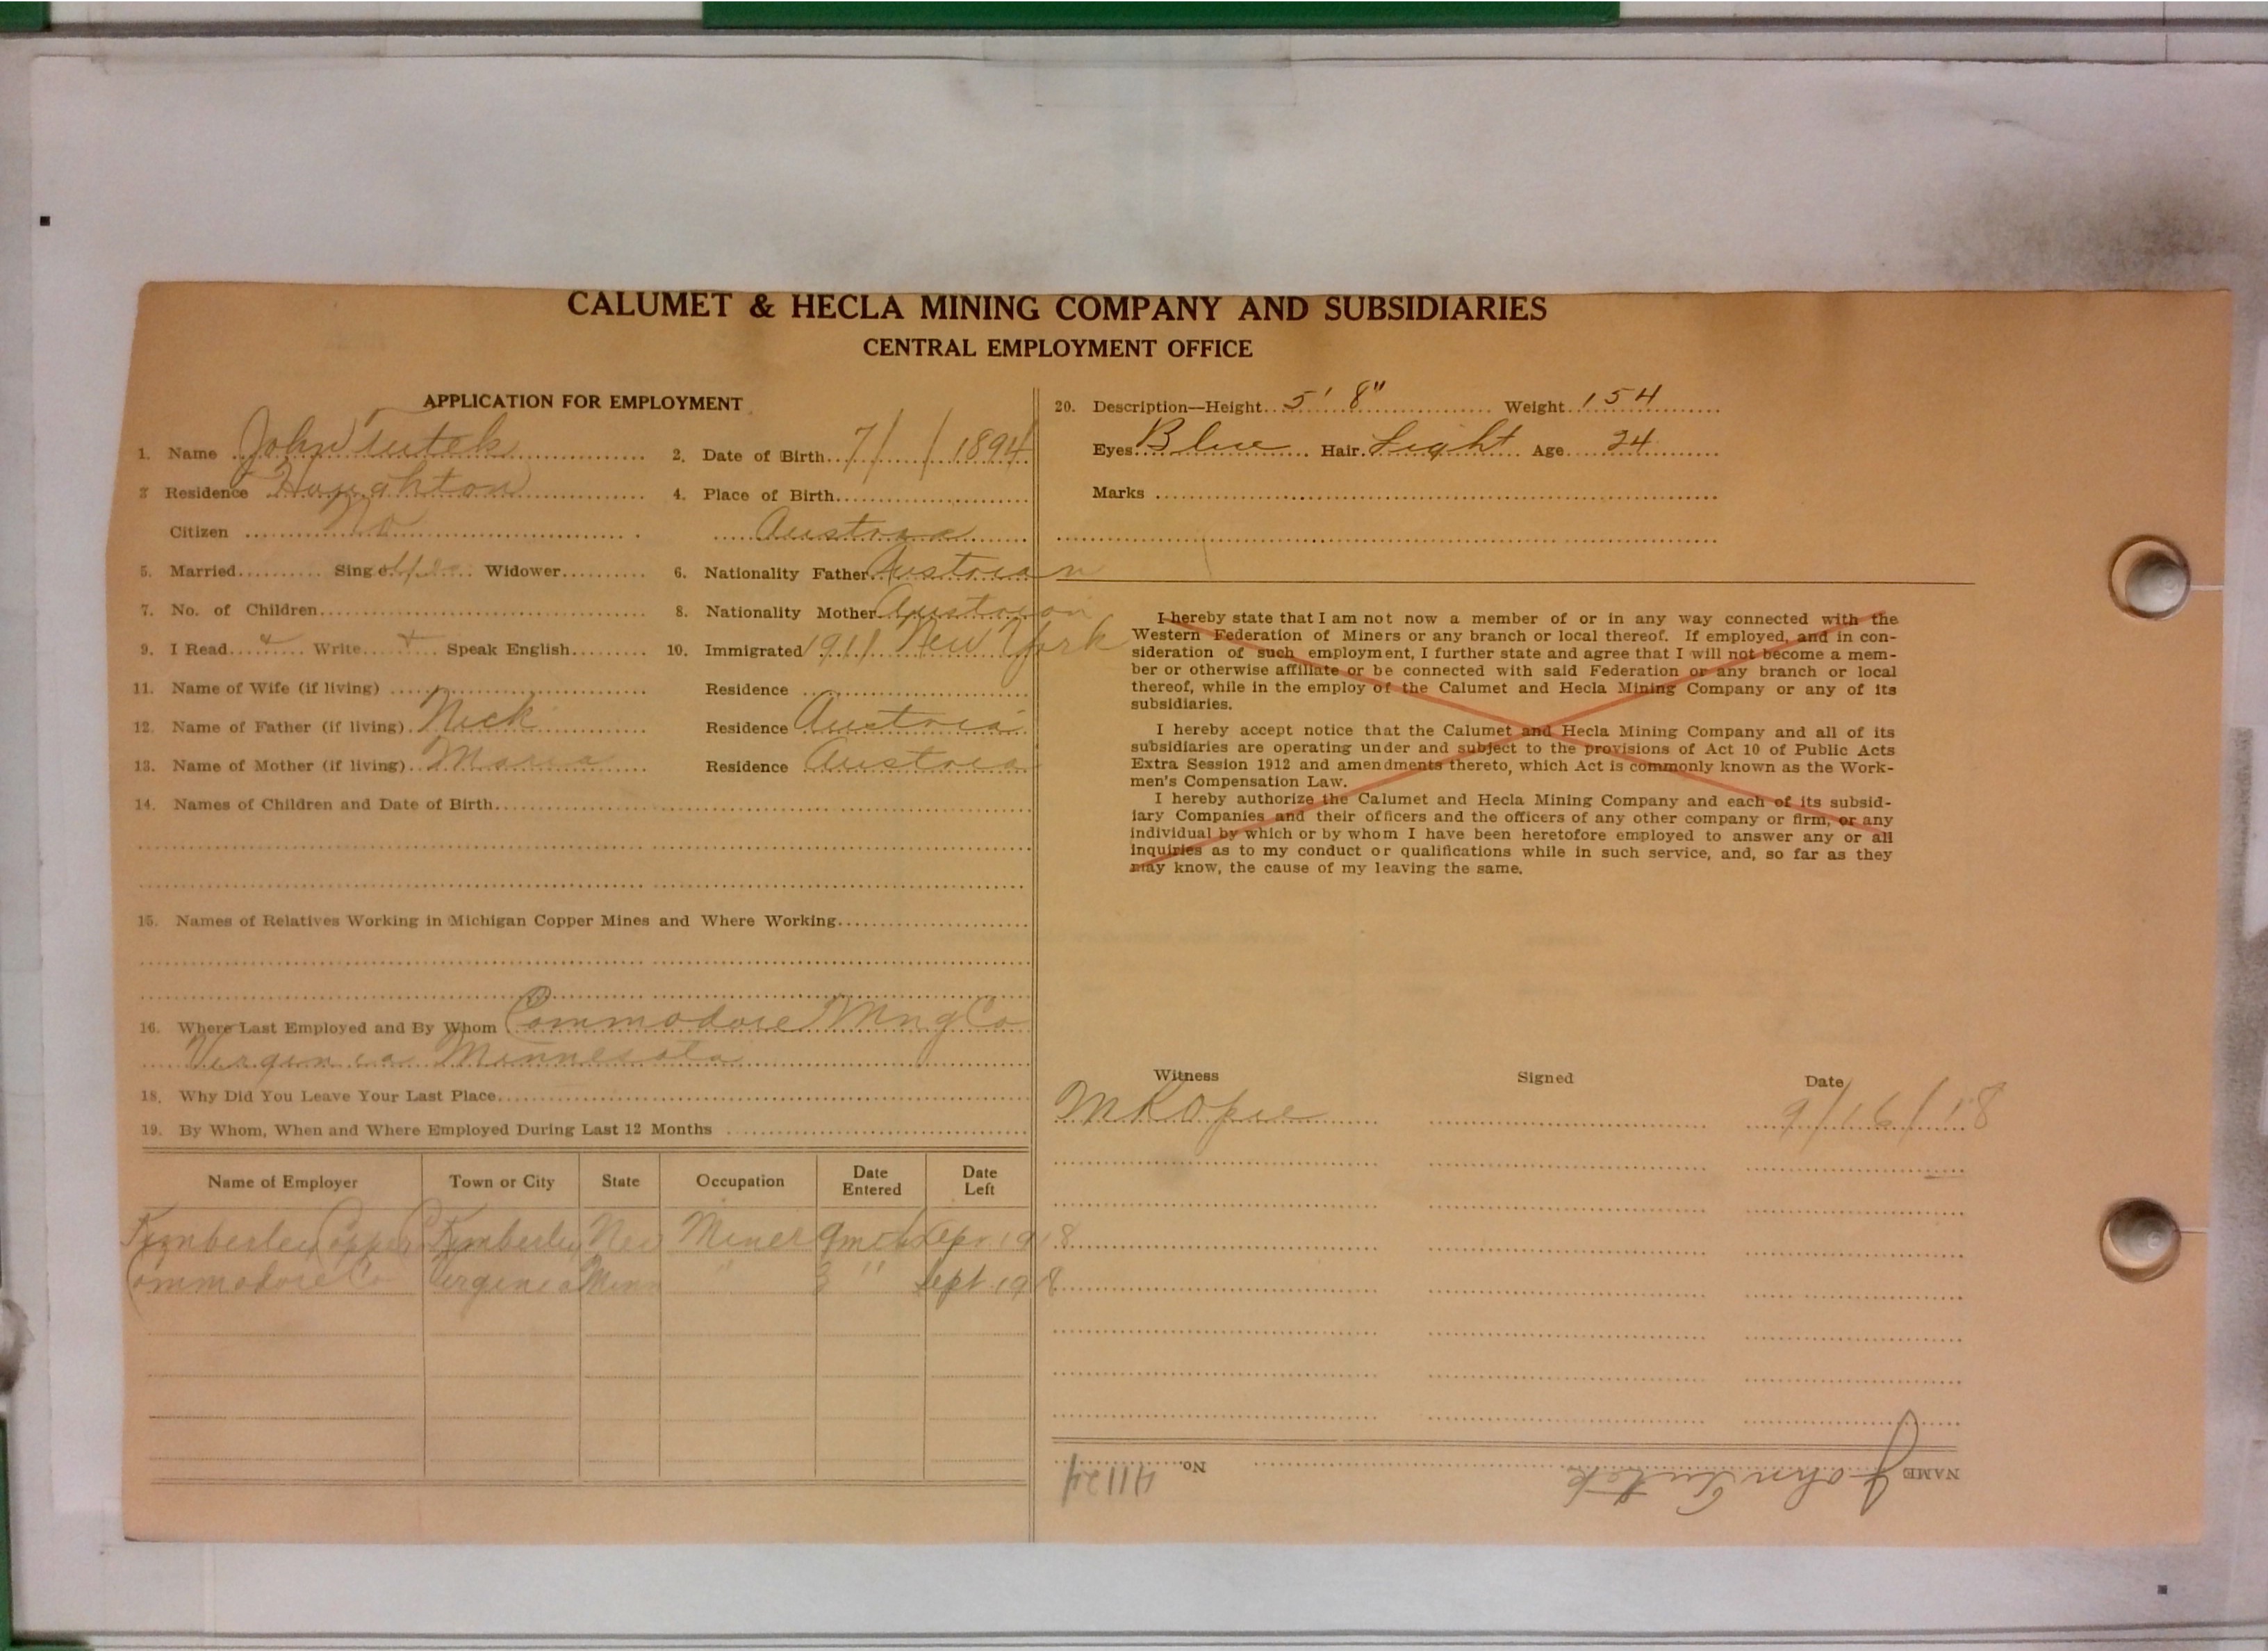 CALUMET & HECLA MINING COMPANY AND SUBSIDIARIES
CENTRAL EMPLOYMENT OFFICE
APPLICATION FOR EMPLOYMENT
1. Name John Tutek
2. Date of Birth 7/ / 1894
3 Residence Houghton
4. Place of Birth
Citizen No
Austria
5. Married Single Widower
6. Nationality Father Austrian
7. No. of Children
8. Nationality Mother Austrian
9. I Read Write Speak English
10. Immigrated 1911 New York
11. Name of Wife (if living)
Residence
12. Name of Father (if living) Nick
Residence Austria
13. Name of Mother (if living) Maria
Residence Austria
14. Names of Children and Date of Birth
15. Names of Relatives Working in Michigan Copper Mines and Where Working
16. Where Last Employed and By Whom Commodore Mng Co
Virginia Minnesota
18. Why Did You Leave Your Last Place
19. By Whom, When and Where Employed During Last 12 Months
Name of Employer Town or City State Occupation Date Entered Date Left
Kimberley Copper Co Kimberley Nev Miner 9 mch Apr 1918
Commodore Co Virginia Minn " 3 " Sept 1918
20. Description—Height 5' 8" Weight 154
Eyes Blue Hair Light Age 24
Marks
I hereby state that I am not now a member of or in any way connected with the
Western Federation of Miners or any branch or local thereof. If employed, and in con-
sideration of such employment, I further state and agree that I will not become a mem-
ber or otherwise affiliate or be connected with said Federation or any branch or local
thereof, while in the employ of the Calumet and Hecla Mining Company or any of its
subsidiaries.
I hereby accept notice that the Calumet and Hecla Mining Company and all of its
subsidiaries are operating under and subject to the provisions of Act 10 of Public Acts
Extra Session 1912 and amendments thereto, which Act is commonly known as the Work-
men's Compensation Law.
I hereby authorize the Calumet and Hecla Mining Company and each of its subsid-
iary Companies and their officers and the officers of any other company or firm, or any
individual by which or by whom I have been heretofore employed to answer any or all
inquiries as to my conduct or qualifications while in such service, and, so far as they
may know, the cause of my leaving the same.
Witness Signed Date
M K Opie 9/16/18
NAME John Tutek No. 41124